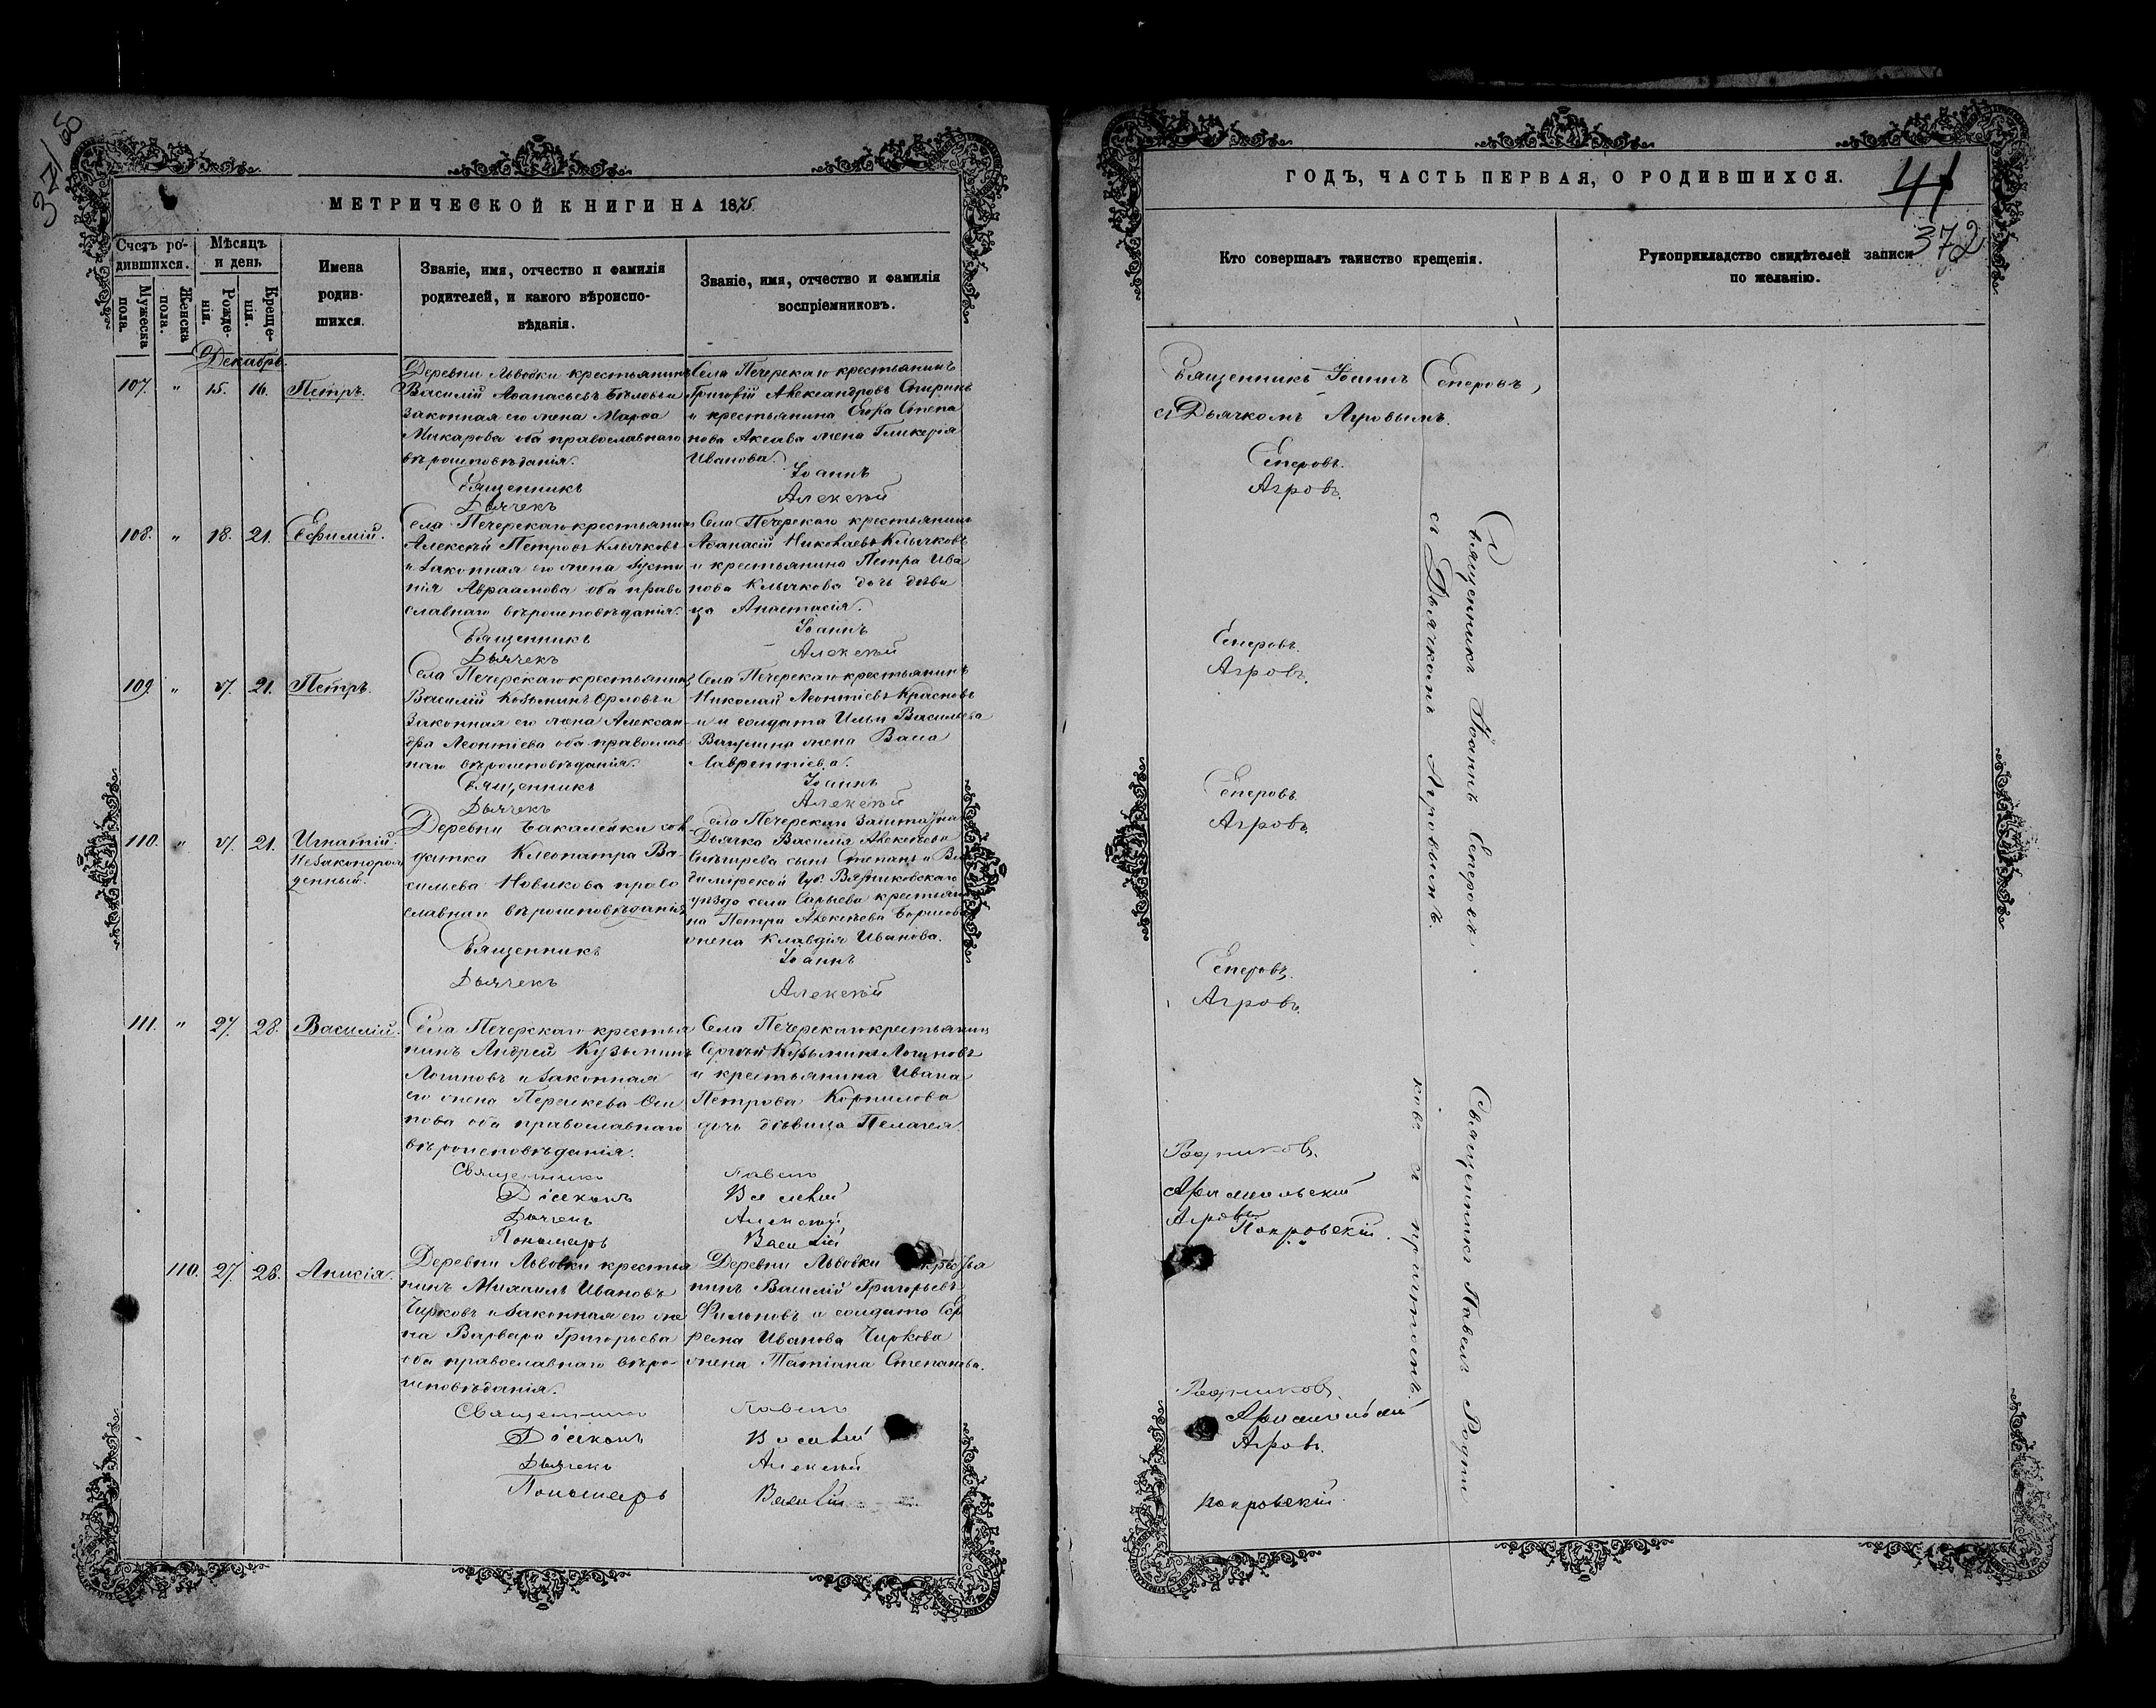 371об
МЕТРИЧЕСКОЙ КНИГИ НА 1875
Счетъ ро-
дившихся.
Мужеска
пола.
Женска
пола.
Мѣсяцъ
и день
Рожде-
нія.
Креще-
нія.
Имена
родив-
шихся.
Званіе, имя, отчество и фамилія
родителей, и какого вѣроиспо-
вѣданія.
Званіе, имя, отчество и фамилія
воспріемниковъ.
Декабрь.
107. " 15. 16. Петръ.
Деревни Львовки крестьянинъ
Василій Аѳанасьевъ Бѣловъ и
законная его жена Марѳа
Макарова оба православнаго
вѣроисповѣданія.
Села Печерскаго крестьянинъ
Григорій Александровъ Спиринъ
и крестьянина Егора Степа
нова жена Гликерія
Иванова.
Священникъ Іоаннъ
Дьячекъ Алексѣй
108. " 18. 21. Ефимій.
Села Печерскаго крестьянинъ
Алексѣй Петровъ Клычковъ
и законная его жена Усти
нія Авраамова оба право
славнаго вѣроисповѣданія.
Села Печерскаго крестьянинъ
Аѳанасій Николаевъ Клычковъ
и крестьянина Петра Ива
нова Клычкова дочь дѣви
ца Анастасія.
Священникъ Іоаннъ
Дьячекъ Алексѣй
109 " 21. Петръ.
Села Печерскаго крестьянинъ
Василій Козьминъ Орловъ и
законная его жена Алексан
дра Леонтіева оба православ
наго вѣроисповѣданія.
Села Печерскаго крестьянинъ
Николай Леонтіевъ Красновъ
и солдата Ильи Васильева
жена Васса
Лаврентіева.
Священникъ Іоаннъ
Дьячекъ Алексѣй
110. " 21. Игнатій.
Незаконорож
денный.
Деревни Бакалейки сол
датка Клеопатра Ва-
сильева Новикова право
славнаго вѣроисповѣданія
Села Печерскаго заштатнаго
Дьячка Василія Алексѣева
сынъ Степанъ и Вла
димірской Губ. Вязниковскаго
уѣзда села Сарыева крестьяни
на Петра Алексѣева
жена Клавдія Иванова.
Священникъ Іоаннъ
Дьячекъ Алексѣй
111. " 27. 28. Василій.
Села Печерскаго крестья
нинъ Андрей Кузьминъ
Логиновъ и законная
его жена Перскева Оси
пова оба православнаго
вѣроисповѣданія.
Села Печерскаго крестьянинъ
Сергѣй Кузьминъ Логиновъ
и крестьянина Ивана
Петрова Корнилова
дочь дѣвица Пелагея.
Священникъ Павелъ
Діаконъ Василій
Дьячекъ Алексѣй
Пономарь Василій
110. 27 28. Анисія.
Деревни Львовки крестья
нинъ Михаилъ Ивановъ
Чирковъ и законная его же
на Варвара Григорьева
оба православнаго вѣро-
исповѣданія.
Деревни Львовки крестья
нинъ Василій Григорьевъ
Филоновъ и солдата Еф
рема Иванова Чиркова
жена Татіана Степанова.
Священникъ Павелъ
Діаконъ Василій
Дьячекъ Алексѣй
Пономарь Василій
ГОДЪ, ЧАСТЬ ПЕРВАЯ, О РОДИВШИХСЯ.
41
372
Кто совершалъ таинство крещенія.
Рукоприкладство свидѣтелей записи
по желанію.
Священникъ Іоаннъ Сеперовъ,
съ Дьячкомъ Агровымъ.
Сеперовъ.
Агровъ.
Священникъ Іоаннъ Сеперовъ.
съ Дьячкомъ Агровымъ.
Сеперовъ.
Агровъ.
Сеперовъ.
Агровъ.
Сеперовъ.
Агровъ.
Священникъ Павелъ Родни
ковъ съ причтомъ.
Родниковъ.
Агровъ.
Покровскій.
Родниковъ.
Агровъ.
Покровскій.